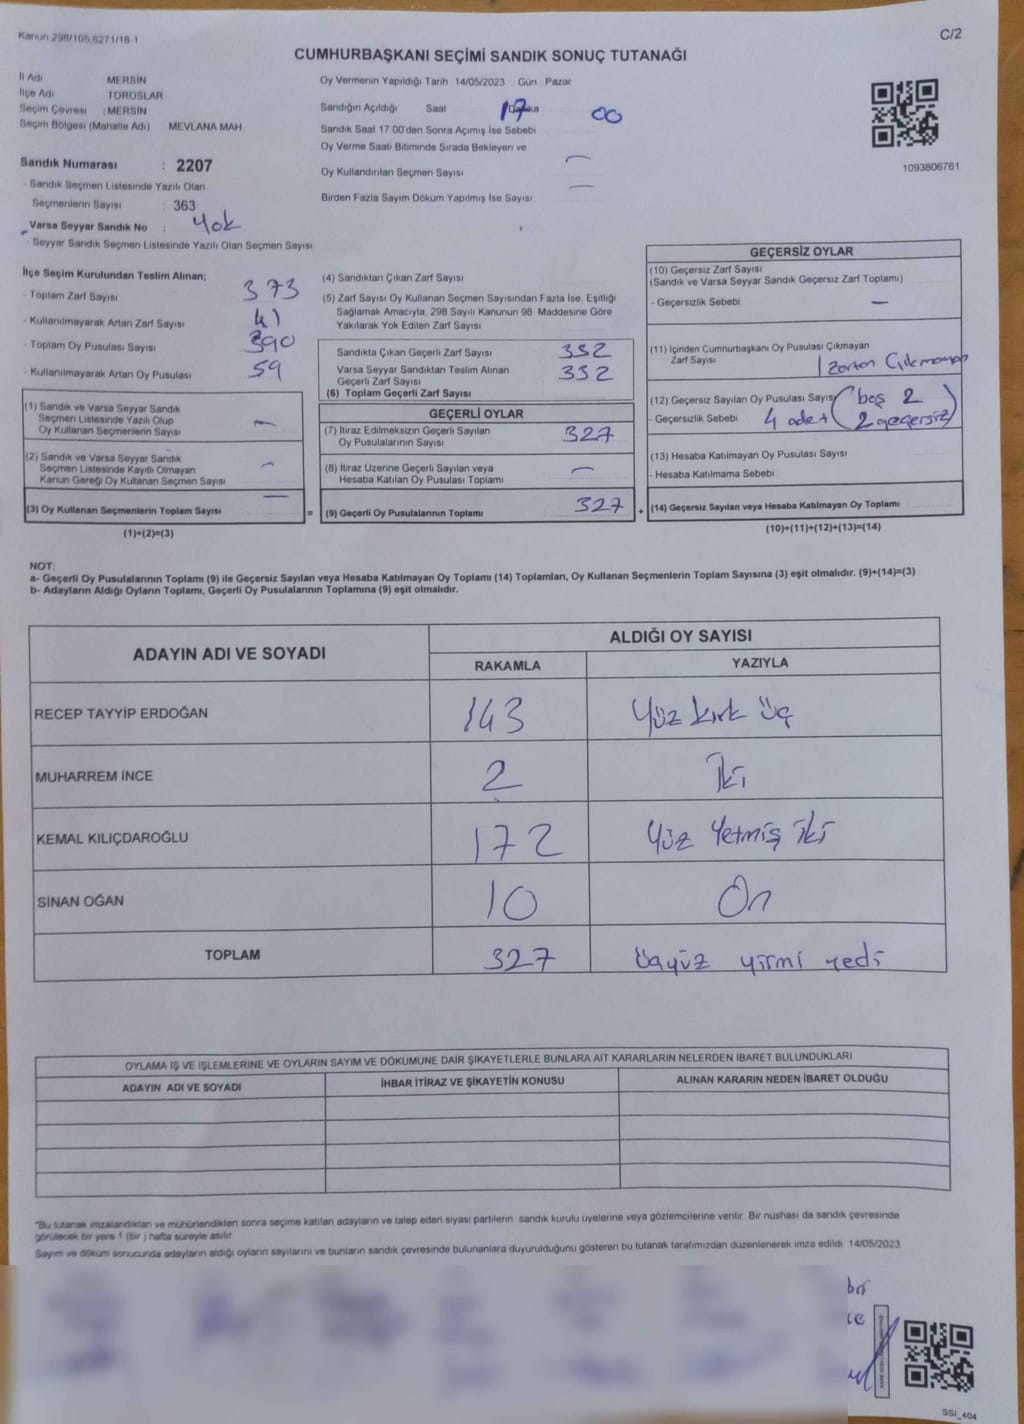 Kanun:298/105,6271/18-1
C/2
CUMHURBAŞKANI SEÇİMİ SANDIK SONUÇ TUTANAĞI
İl Adı MERSİN
İlçe Adı TOROSLAR
Seçim Çevresi : MERSİN
Seçim Bölgesi (Mahalle Adı) MEVLANA MAH
Sandık Numarası : 2207
- Sandık Seçmen Listesinde Yazılı Olan
Seçmenlerin Sayısı : 363
Varsa Seyyar Sandık No : Yok
- Seyyar Sandık Seçmen Listesinde Yazılı Olan Seçmen Sayısı
Oy Vermenin Yapıldığı Tarih 14/05/2023 Gün Pazar
Sandığın Açıldığı Saat 17 Dakika 00
Sandık Saat 17.00'den Sonra Açımış İse Sebebi
Oy Verme Saati Bitiminde Sırada Bekleyen ve
Oy Kullandırılan Seçmen Sayısı —
Birden Fazla Sayım Döküm Yapılmış İse Sayısı —
1093806761
İlçe Seçim Kurulundan Teslim Alınan;
- Toplam Zarf Sayısı 373
- Kullanılmayarak Artan Zarf Sayısı 41
- Toplam Oy Pusulası Sayısı 390
- Kullanılmayarak Artan Oy Pusulası 59
(1) Sandık ve Varsa Seyyar Sandık
Seçmen Listesinde Yazılı Olup
Oy Kullanan Seçmenlerin Sayısı —
(2) Sandık ve Varsa Seyyar Sandık
Seçmen Listesinde Kayıtlı Olmayan
Kanun Gereği Oy Kullanan Seçmen Sayısı —
(3) Oy Kullanan Seçmenlerin Toplam Sayısı —
(1)+(2)=(3)
(4) Sandıktan Çıkan Zarf Sayısı
(5) Zarf Sayısı Oy Kullanan Seçmen Sayısından Fazla İse, Eşitliği
Sağlamak Amacıyla, 298 Sayılı Kanunun 98. Maddesine Göre
Yakılarak Yok Edilen Zarf Sayısı
Sandıkta Çıkan Geçerli Zarf Sayısı 332
Varsa Seyyar Sandıktan Teslim Alınan
Geçerli Zarf Sayısı 332
(6) Toplam Geçerli Zarf Sayısı
GEÇERLİ OYLAR
(7) İtiraz Edilmeksizin Geçerli Sayılan
Oy Pusulalarının Sayısı 327
(8) İtiraz Üzerine Geçerli Sayılan veya
Hesaba Katılan Oy Pusulası Toplamı —
= (9) Geçerli Oy Pusulalarının Toplamı 327 +
GEÇERSİZ OYLAR
(10) Geçersiz Zarf Sayısı
(Sandık ve Varsa Seyyar Sandık Geçersiz Zarf Toplamı)
- Geçersizlik Sebebi —
(11) İçinden Cumhurbaşkanı Oy Pusulası Çıkmayan
Zarf Sayısı 1 zarftan Çıkmayan
(12) Geçersiz Sayılan Oy Pusulası Sayısı (boş 2
- Geçersizlik Sebebi 4 adet 2 geçersiz)
(13) Hesaba Katılmayan Oy Pusulası Sayısı
- Hesaba Katılmama Sebebi
(14) Geçersiz Sayılan veya Hesaba Katılmayan Oy Toplamı
(10)+(11)+(12)+(13)=(14)
NOT:
a- Geçerli Oy Pusulalarının Toplamı (9) ile Geçersiz Sayılan veya Hesaba Katılmayan Oy Toplamı (14) Toplamları, Oy Kullanan Seçmenlerin Toplam Sayısına (3) eşit olmalıdır. (9)+(14)=(3)
b- Adayların Aldığı Oyların Toplamı, Geçerli Oy Pusulalarının Toplamına (9) eşit olmalıdır.
ADAYIN ADI VE SOYADI ALDIĞI OY SAYISI
RAKAMLA YAZIYLA
RECEP TAYYİP ERDOĞAN 143 Yüz kırk üç
MUHARREM İNCE 2 İki
KEMAL KILIÇDAROĞLU 172 Yüz Yetmiş iki
SİNAN OĞAN 10 On
TOPLAM 327 Üçyüz yirmi yedi
OYLAMA İŞ VE İŞLEMLERİNE VE OYLARIN SAYIM VE DÖKÜMÜNE DAİR ŞİKAYETLERLE BUNLARA AİT KARARLARIN NELERDEN İBARET BULUNDUKLARI
ADAYIN ADI VE SOYADI İHBAR İTİRAZ VE ŞİKAYETİN KONUSU ALINAN KARARIN NEDEN İBARET OLDUĞU
*Bu tutanak imzalandıktan ve mühürlendikten sonra seçime katılan adayların ve talep eden siyasi partilerin sandık kurulu üyelerine veya gözlemcilerine verilir. Bir nüshası da sandık çevresinde
görülecek bir yere 1 (bir) hafta süreyle asılır.
Sayım ve döküm sonucunda adayların aldığı oyların sayılarını ve bunların sandık çevresinde bulunanlara duyurulduğunu gösteren bu tutanak tarafımızdan düzenlenerek imza edildi. 14/05/2023
SSI_404